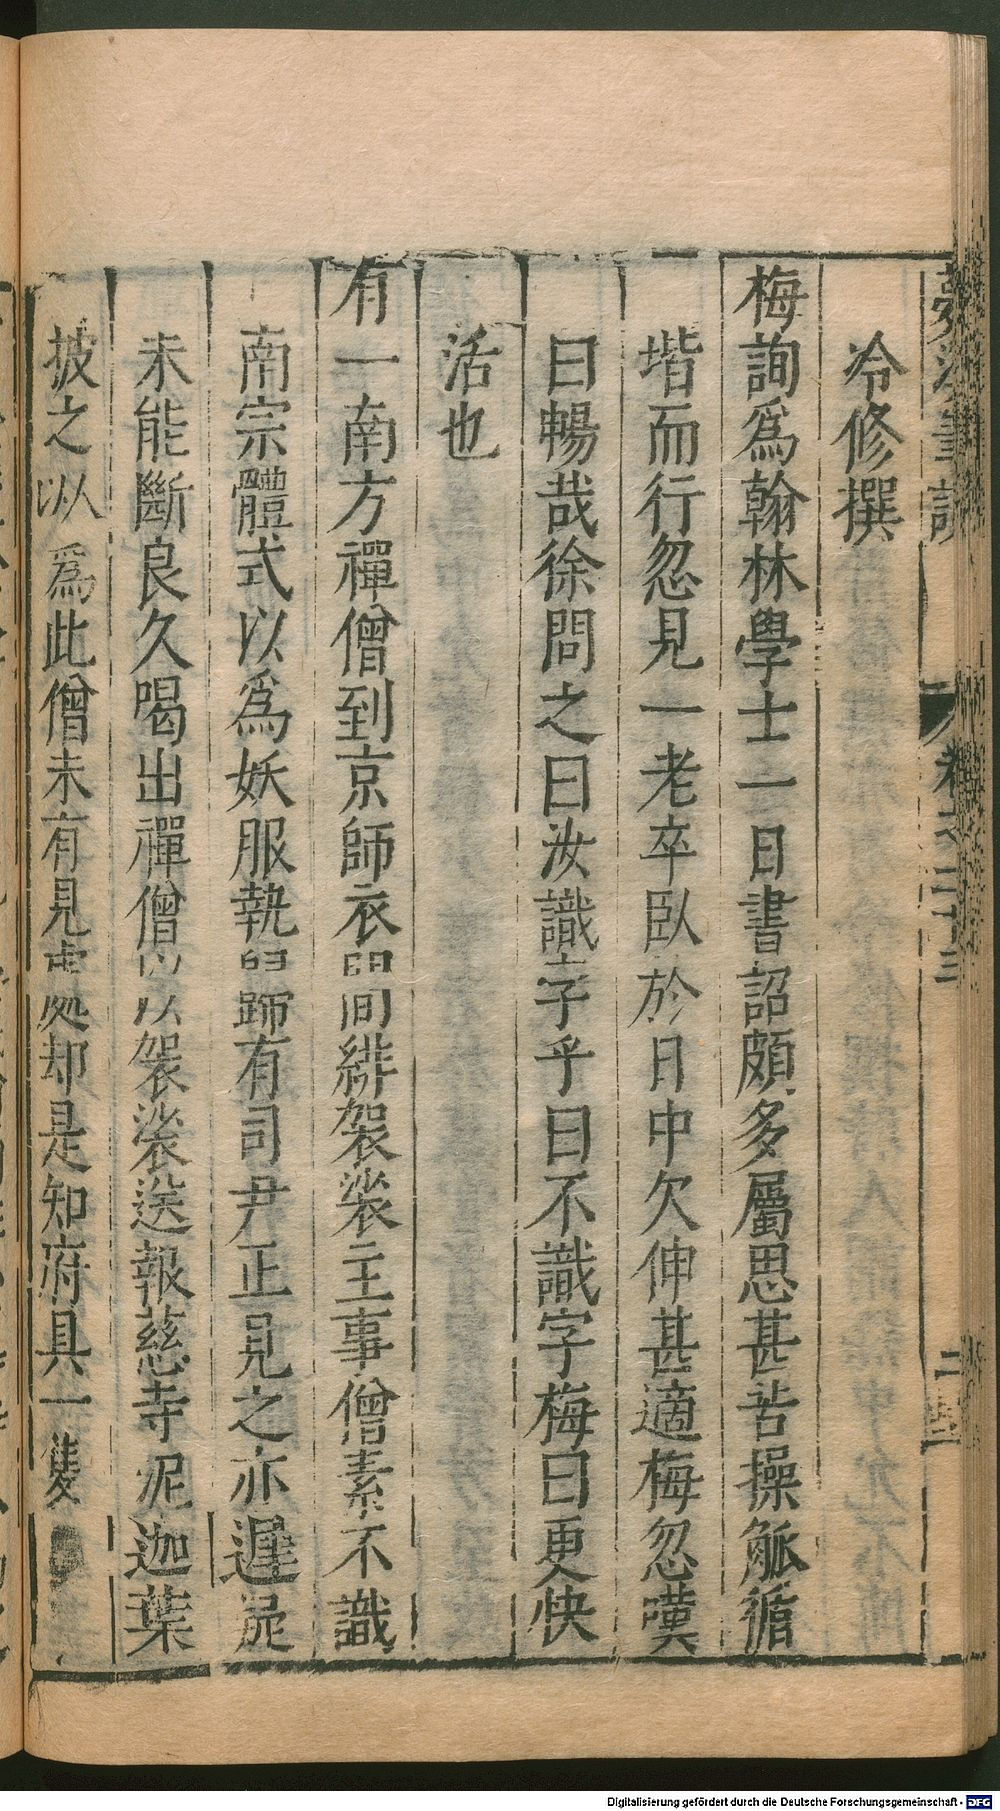 夢溪筆談 卷之二十三 二
冷修撰
梅詢爲翰林學士一日書詔頗多屬思甚苦操觚循
堦而行忽見一老卒臥於日中欠伸甚適梅忽嘆
曰暢哉徐問之曰汝識字乎曰不識字梅曰更快
活也
有一南方禪僧到京師衣間緋袈裟主事僧素不識
南宗體式以爲妖服執歸有司尹正見之亦遲疑
未能斷良久喝出禪僧以袈裟送報慈寺泥迦葉
披之以爲此僧未有見處却是知府具一隻
Digitalisierung gefördert durch die Deutsche Forschungsgemeinschaft - DFG